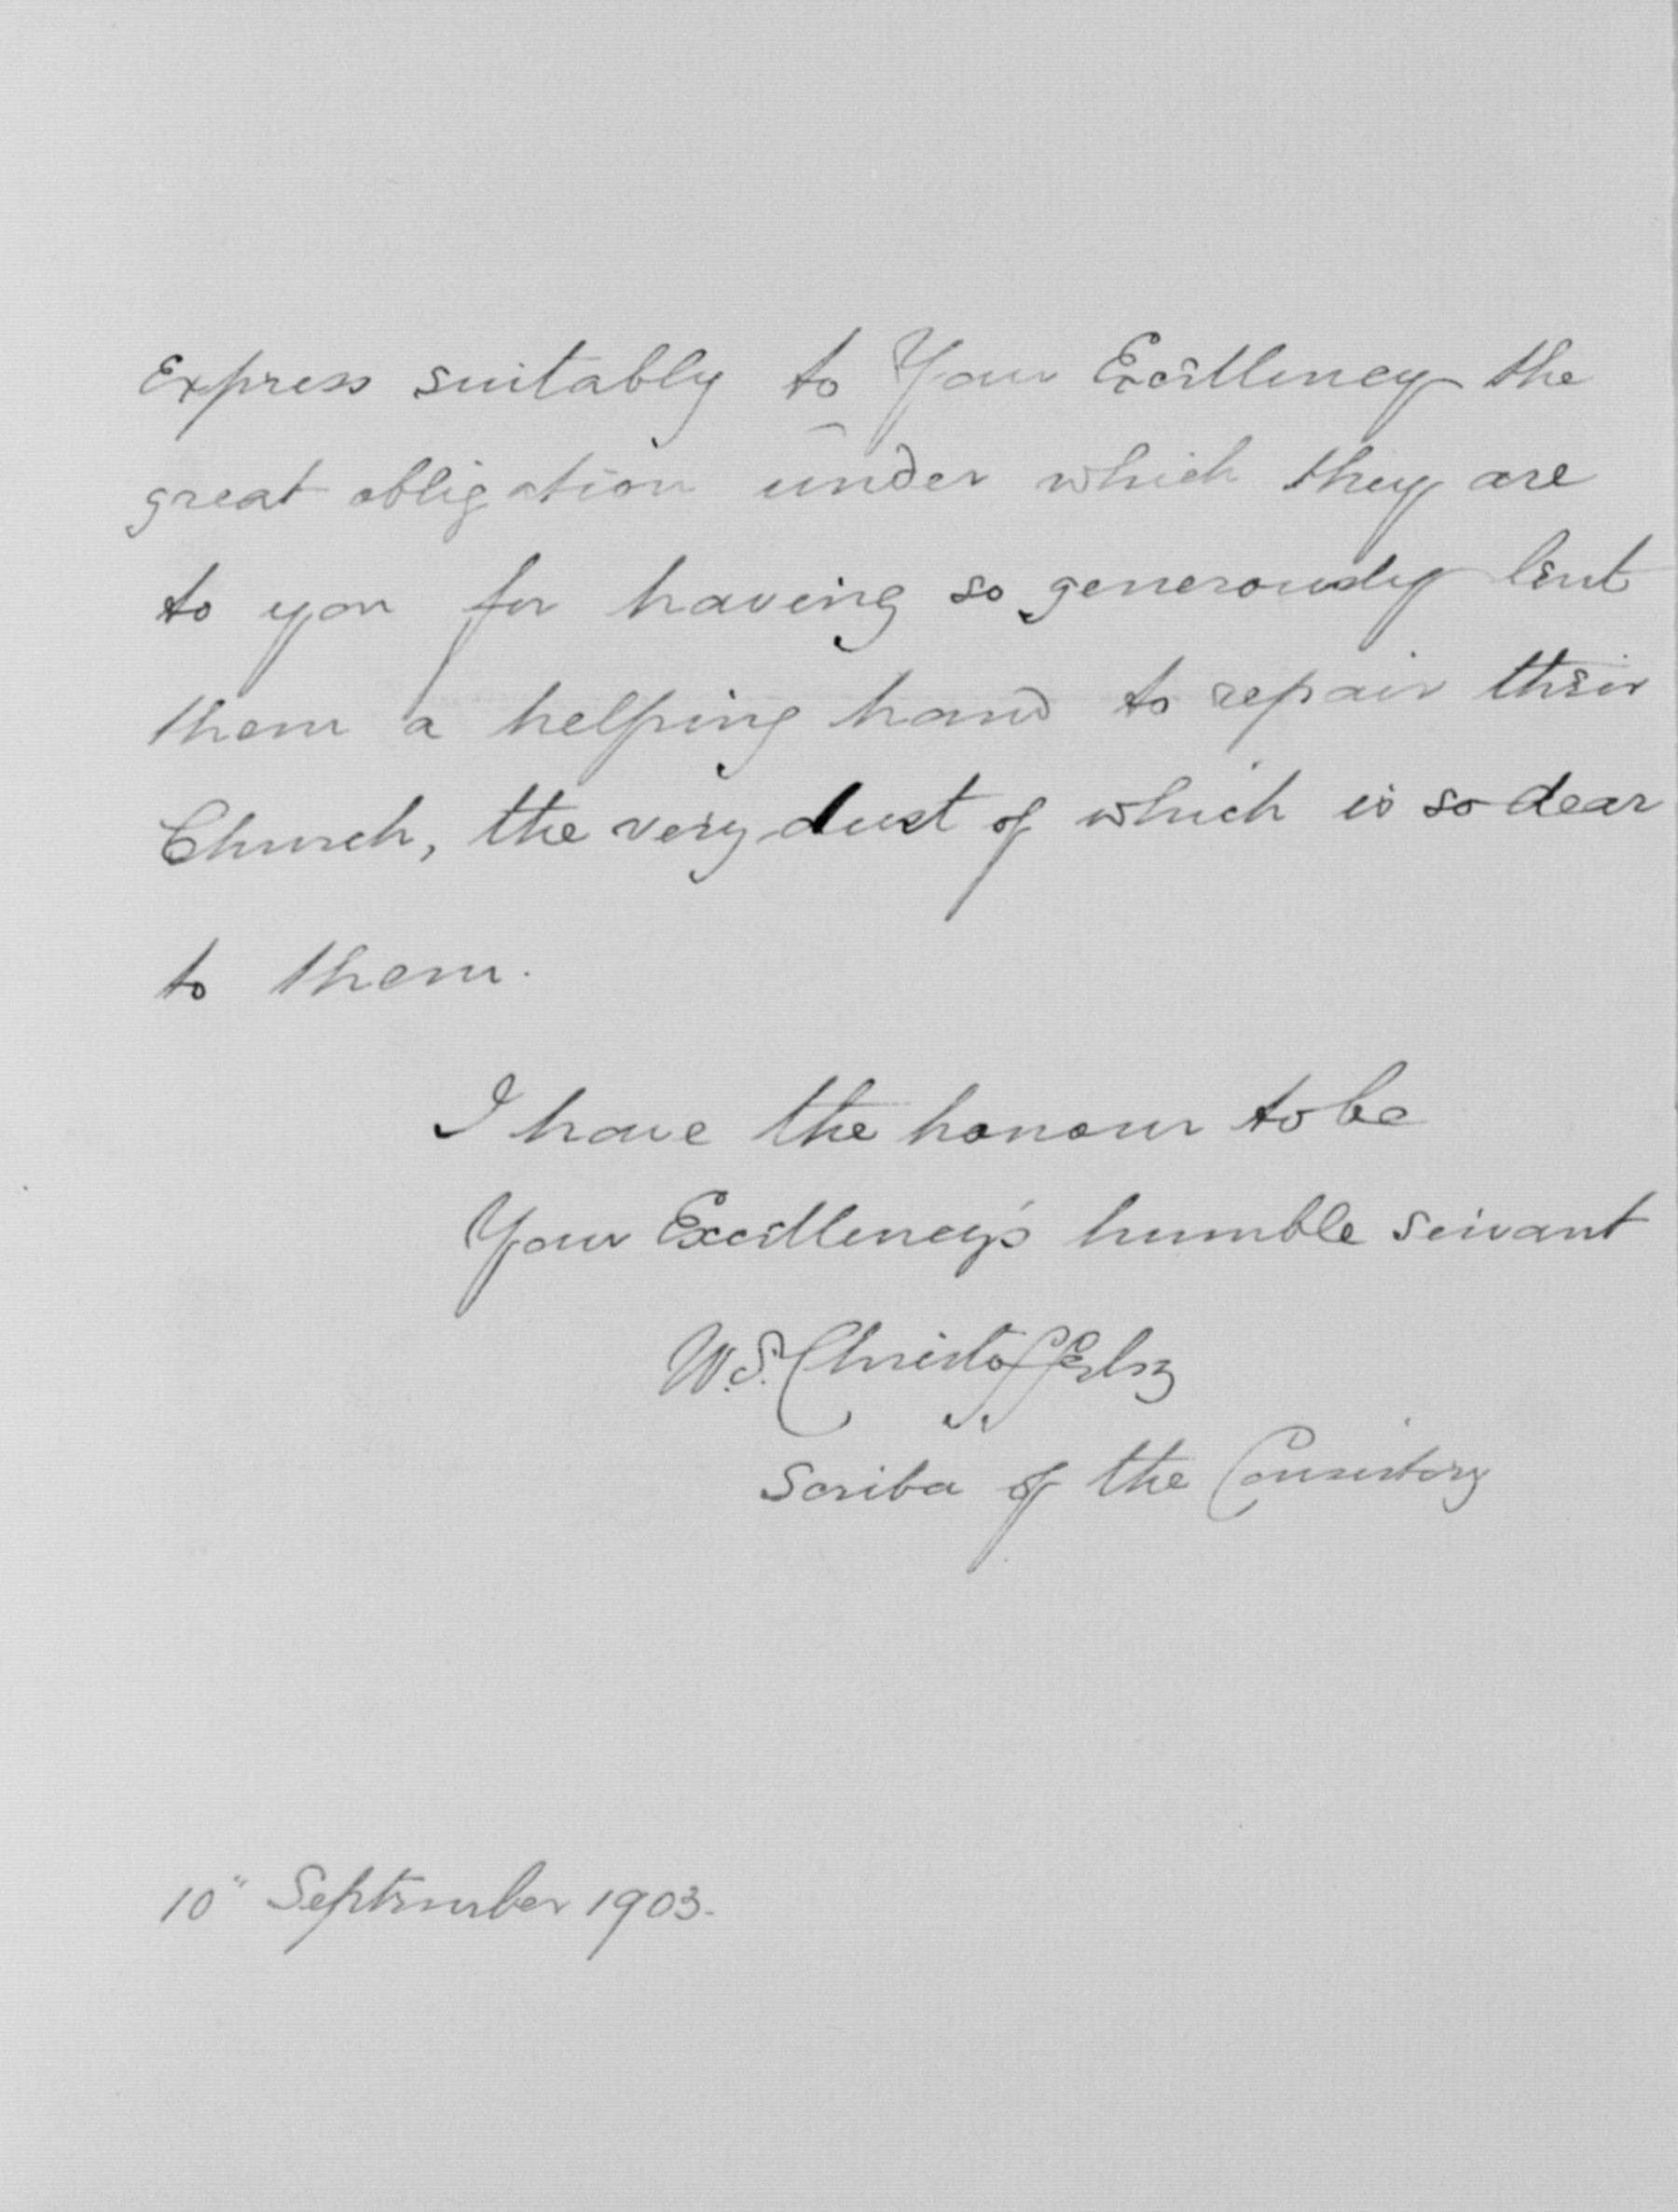 express suitably to Your Excellency the
great obligation under which they are
to you for having so generously lent
them a helping hand to repair their
Church, the very dust of which is so dear
to them.
I have the honour to be
Your Excellency's humble servant
W. S. Christoffelsz
Scriba of the Consistory
10" September 1903.